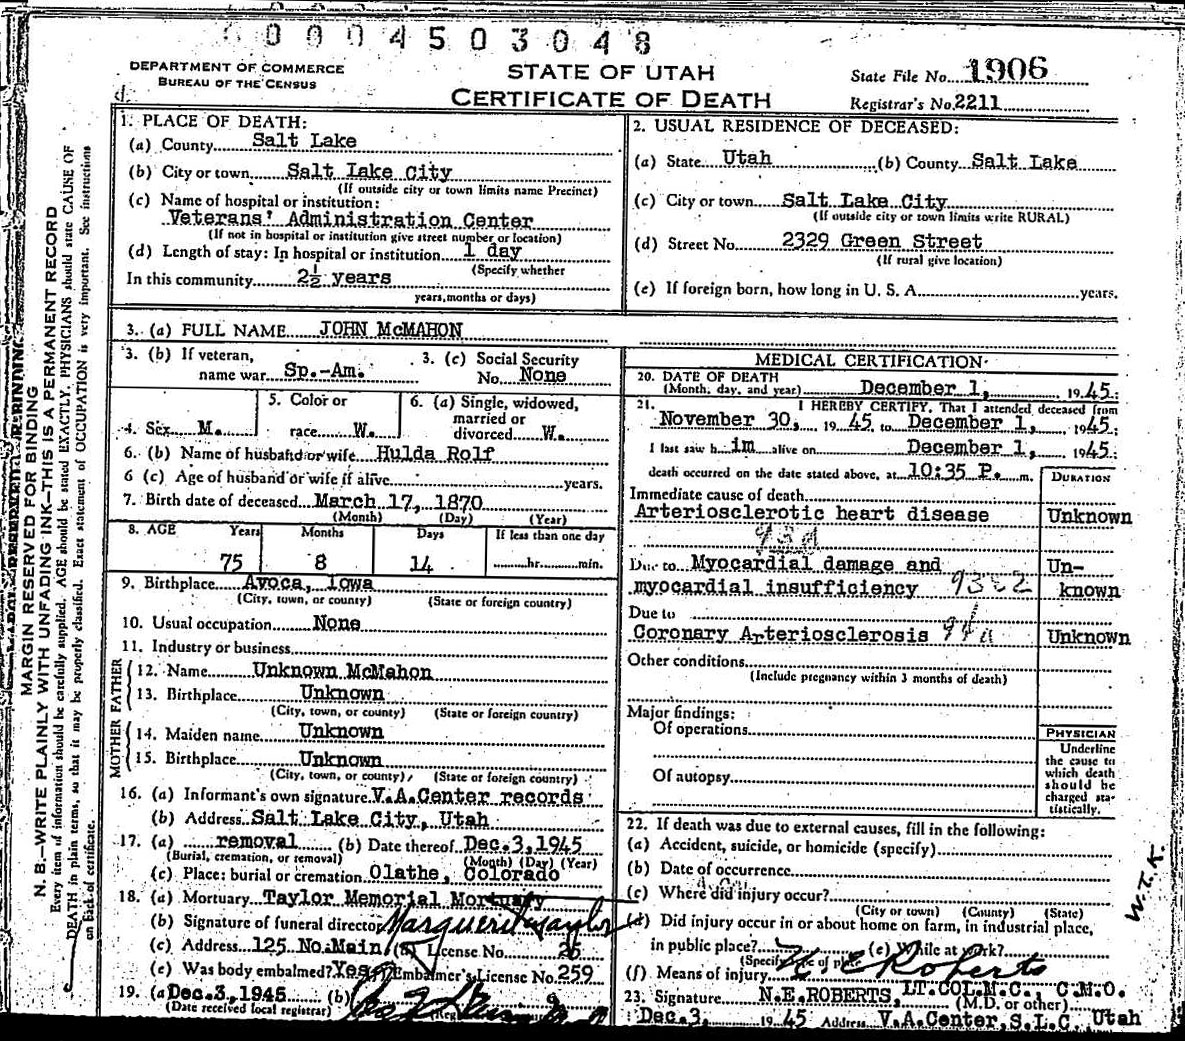 0004503048
DEPARTMENT OF COMMERCE
BUREAU OF THE CENSUS
STATE OF UTAH
CERTIFICATE OF DEATH
State File No. 1906
Registrar's No. 2211
1. PLACE OF DEATH:
(a) County Salt Lake
(b) City or town Salt Lake City
(If outside city or town limits name Precinct)
(c) Name of hospital or institution:
Veterans' Administration Center
(If not in hospital or institution give street number or location)
(d) Length of stay: In hospital or institution 1 day
(Specify whether
In this community 2½ years
years, months or days)
2. USUAL RESIDENCE OF DECEASED:
(a) State Utah (b) County Salt Lake
(c) City or town Salt Lake City
(If outside city or town limits write RURAL)
(d) Street No. 2329 Green Street
(If rural give location)
(e) If foreign born, how long in U. S. A. years.
3. (a) FULL NAME JOHN McMAHON
3. (b) If veteran, name war Sp.-Am.
3. (c) Social Security No. None
4. Sex M.
5. Color or race W.
6. (a) Single, widowed, married or divorced W.
6. (b) Name of husband or wife Hulda Rolf
6 (c) Age of husband or wife if alive years.
7. Birth date of deceased March 17, 1870
(Month) (Day) (Year)
8. AGE Years Months Days If less than one day
75 8 14 hr. min.
9. Birthplace Avoca, Iowa
(City, town, or county) (State or foreign country)
10. Usual occupation None
11. Industry or business
FATHER
12. Name Unknown McMahon
13. Birthplace Unknown
(City, town, or county) (State or foreign country)
MOTHER
14. Maiden name Unknown
15. Birthplace Unknown
(City, town, or county) (State or foreign country)
16. (a) Informant's own signature V.A.Center records
(b) Address Salt Lake City, Utah
17. (a) removal (b) Date thereof Dec.3,1945
(Burial, cremation, or removal) (Month) (Day) (Year)
(c) Place: burial or cremation Olathe, Colorado
18. (a) Mortuary Taylor Memorial Mortuary
(b) Signature of funeral director Marguerite Taylor
(c) Address 125 No.Main License No. 26
(e) Was body embalmed? Yes Embalmer's License No. 259
19. (a Dec.3,1945 (b)
(Date received local registrar)
MEDICAL CERTIFICATION
20. DATE OF DEATH
(Month, day, and year) December 1, 1945.
21. I HEREBY CERTIFY, That I attended deceased from
November 30, 1945 to December 1, 1945;
I last saw him alive on December 1, 1945;
death occurred on the date stated above, at 10:35 P. m.
DURATION
Immediate cause of death
Arteriosclerotic heart disease Unknown
93d
Due to Myocardial damage and Un-
myocardial insufficiency known
Due to
Coronary Arteriosclerosis 94a Unknown
Other conditions
(Include pregnancy within 3 months of death)
Major findings:
Of operations
Of autopsy
PHYSICIAN
Underline
the cause to
which death
should be
charged sta-
tistically.
22. If death was due to external causes, fill in the following:
(a) Accident, suicide, or homicide (specify)
(b) Date of occurrence
(c) Where did injury occur?
(City or town) (County) (State)
(d) Did injury occur in or about home on farm, in industrial place,
in public place? (e) While at work?
(Specify type of place)
(f) Means of injury
N E Roberts
23. Signature N.E.ROBERTS, LT.COL.M.C., C.M.O.
(M.D. or other)
Dec.3, 1945 Address V.A.Center,S.L.C. Utah
W.T.K.
MARGIN RESERVED FOR BINDING
N. B.—WRITE PLAINLY WITH UNFADING INK—THIS IS A PERMANENT RECORD
Every item of information should be carefully supplied. AGE should be stated EXACTLY. PHYSICIANS should state CAUSE OF
DEATH in plain terms, so that it may be properly classified. Exact statement of OCCUPATION is very important. See instructions
on back of certificate.